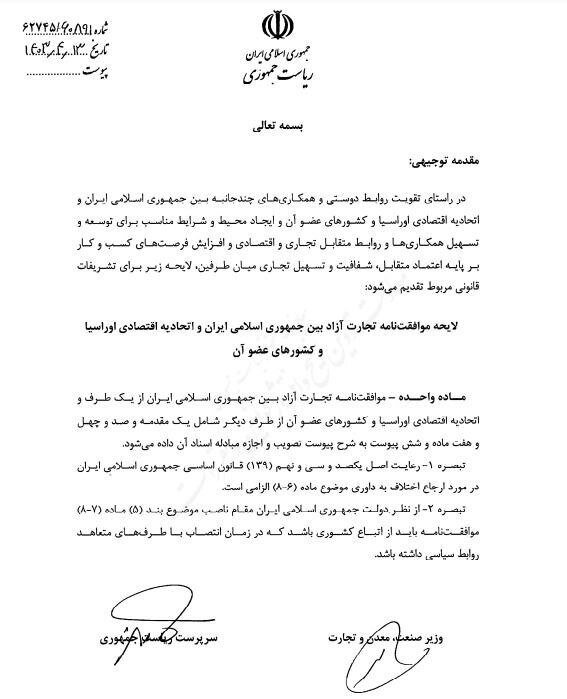 شماره ۶۲۷۴۵/۶۰۸۹۱
تاریخ ۱۴۰۳.۴.۱۳
پیوست
جمهوری اسلامی ایران
ریاست جمهوری
بسمه تعالی
مقدمه توجیهی:
در راستای تقویت روابط دوستی و همکاری‌های چندجانبه بین جمهوری اسلامی ایران و
اتحادیه اقتصادی اوراسیا و کشورهای عضو آن و ایجاد محیط و شرایط مناسب برای توسعه و
تسهیل همکاری‌ها و روابط متقابل تجاری و اقتصادی و افزایش فرصت‌های کسب و کار
بر پایه اعتماد متقابل، شفافیت و تسهیل تجاری میان طرفین، لایحه زیر برای تشریفات
قانونی مربوط تقدیم می‌شود:
لایحه موافقت‌نامه تجارت آزاد بین جمهوری اسلامی ایران و اتحادیه اقتصادی اوراسیا
و کشورهای عضو آن
ماده واحده – موافقت‌نامه تجارت آزاد بین جمهوری اسلامی ایران از یک طرف و
اتحادیه اقتصادی اوراسیا و کشورهای عضو آن از طرف دیگر شامل یک مقدمه و صد و چهل
و هفت ماده و شش پیوست به شرح پیوست تصویب و اجازه مبادله اسناد آن داده می‌شود.
تبصره ۱- رعایت اصل یکصد و سی و نهم (۱۳۹) قانون اساسی جمهوری اسلامی ایران
در مورد ارجاع اختلاف به داوری موضوع ماده (۶-۸) الزامی است.
تبصره ۲- از نظر دولت جمهوری اسلامی ایران مقام ناصب موضوع بند (۵) ماده (۷-۸)
موافقت‌نامه باید از اتباع کشوری باشد که در زمان انتصاب با طرف‌های متعاهد
روابط سیاسی داشته باشد.
وزیر صنعت، معدن و تجارت
سرپرست ریاست جمهوری